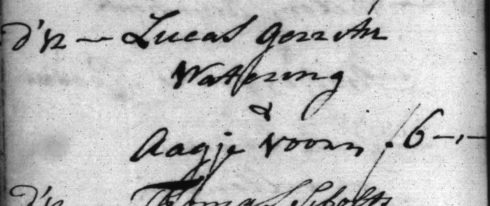 d'12 — Lucas Gerrits
Watering
&
Aagje Voorn f 6 –,–
d'12 Thomas Scholts